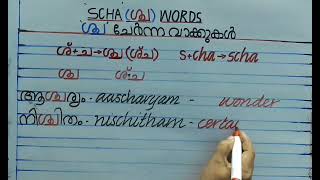 SCHA (ശ്ച) WORDS
ശ്ച ചേർന്ന വാക്കുകൾ
ശ്+ച→ശ്ച (ശ്ച) s+cha→scha
ശ്ച ശ്ച
ആശ്ചര്യം - aascharyam - wonder
നിശ്ചിതം - nischitham - certa